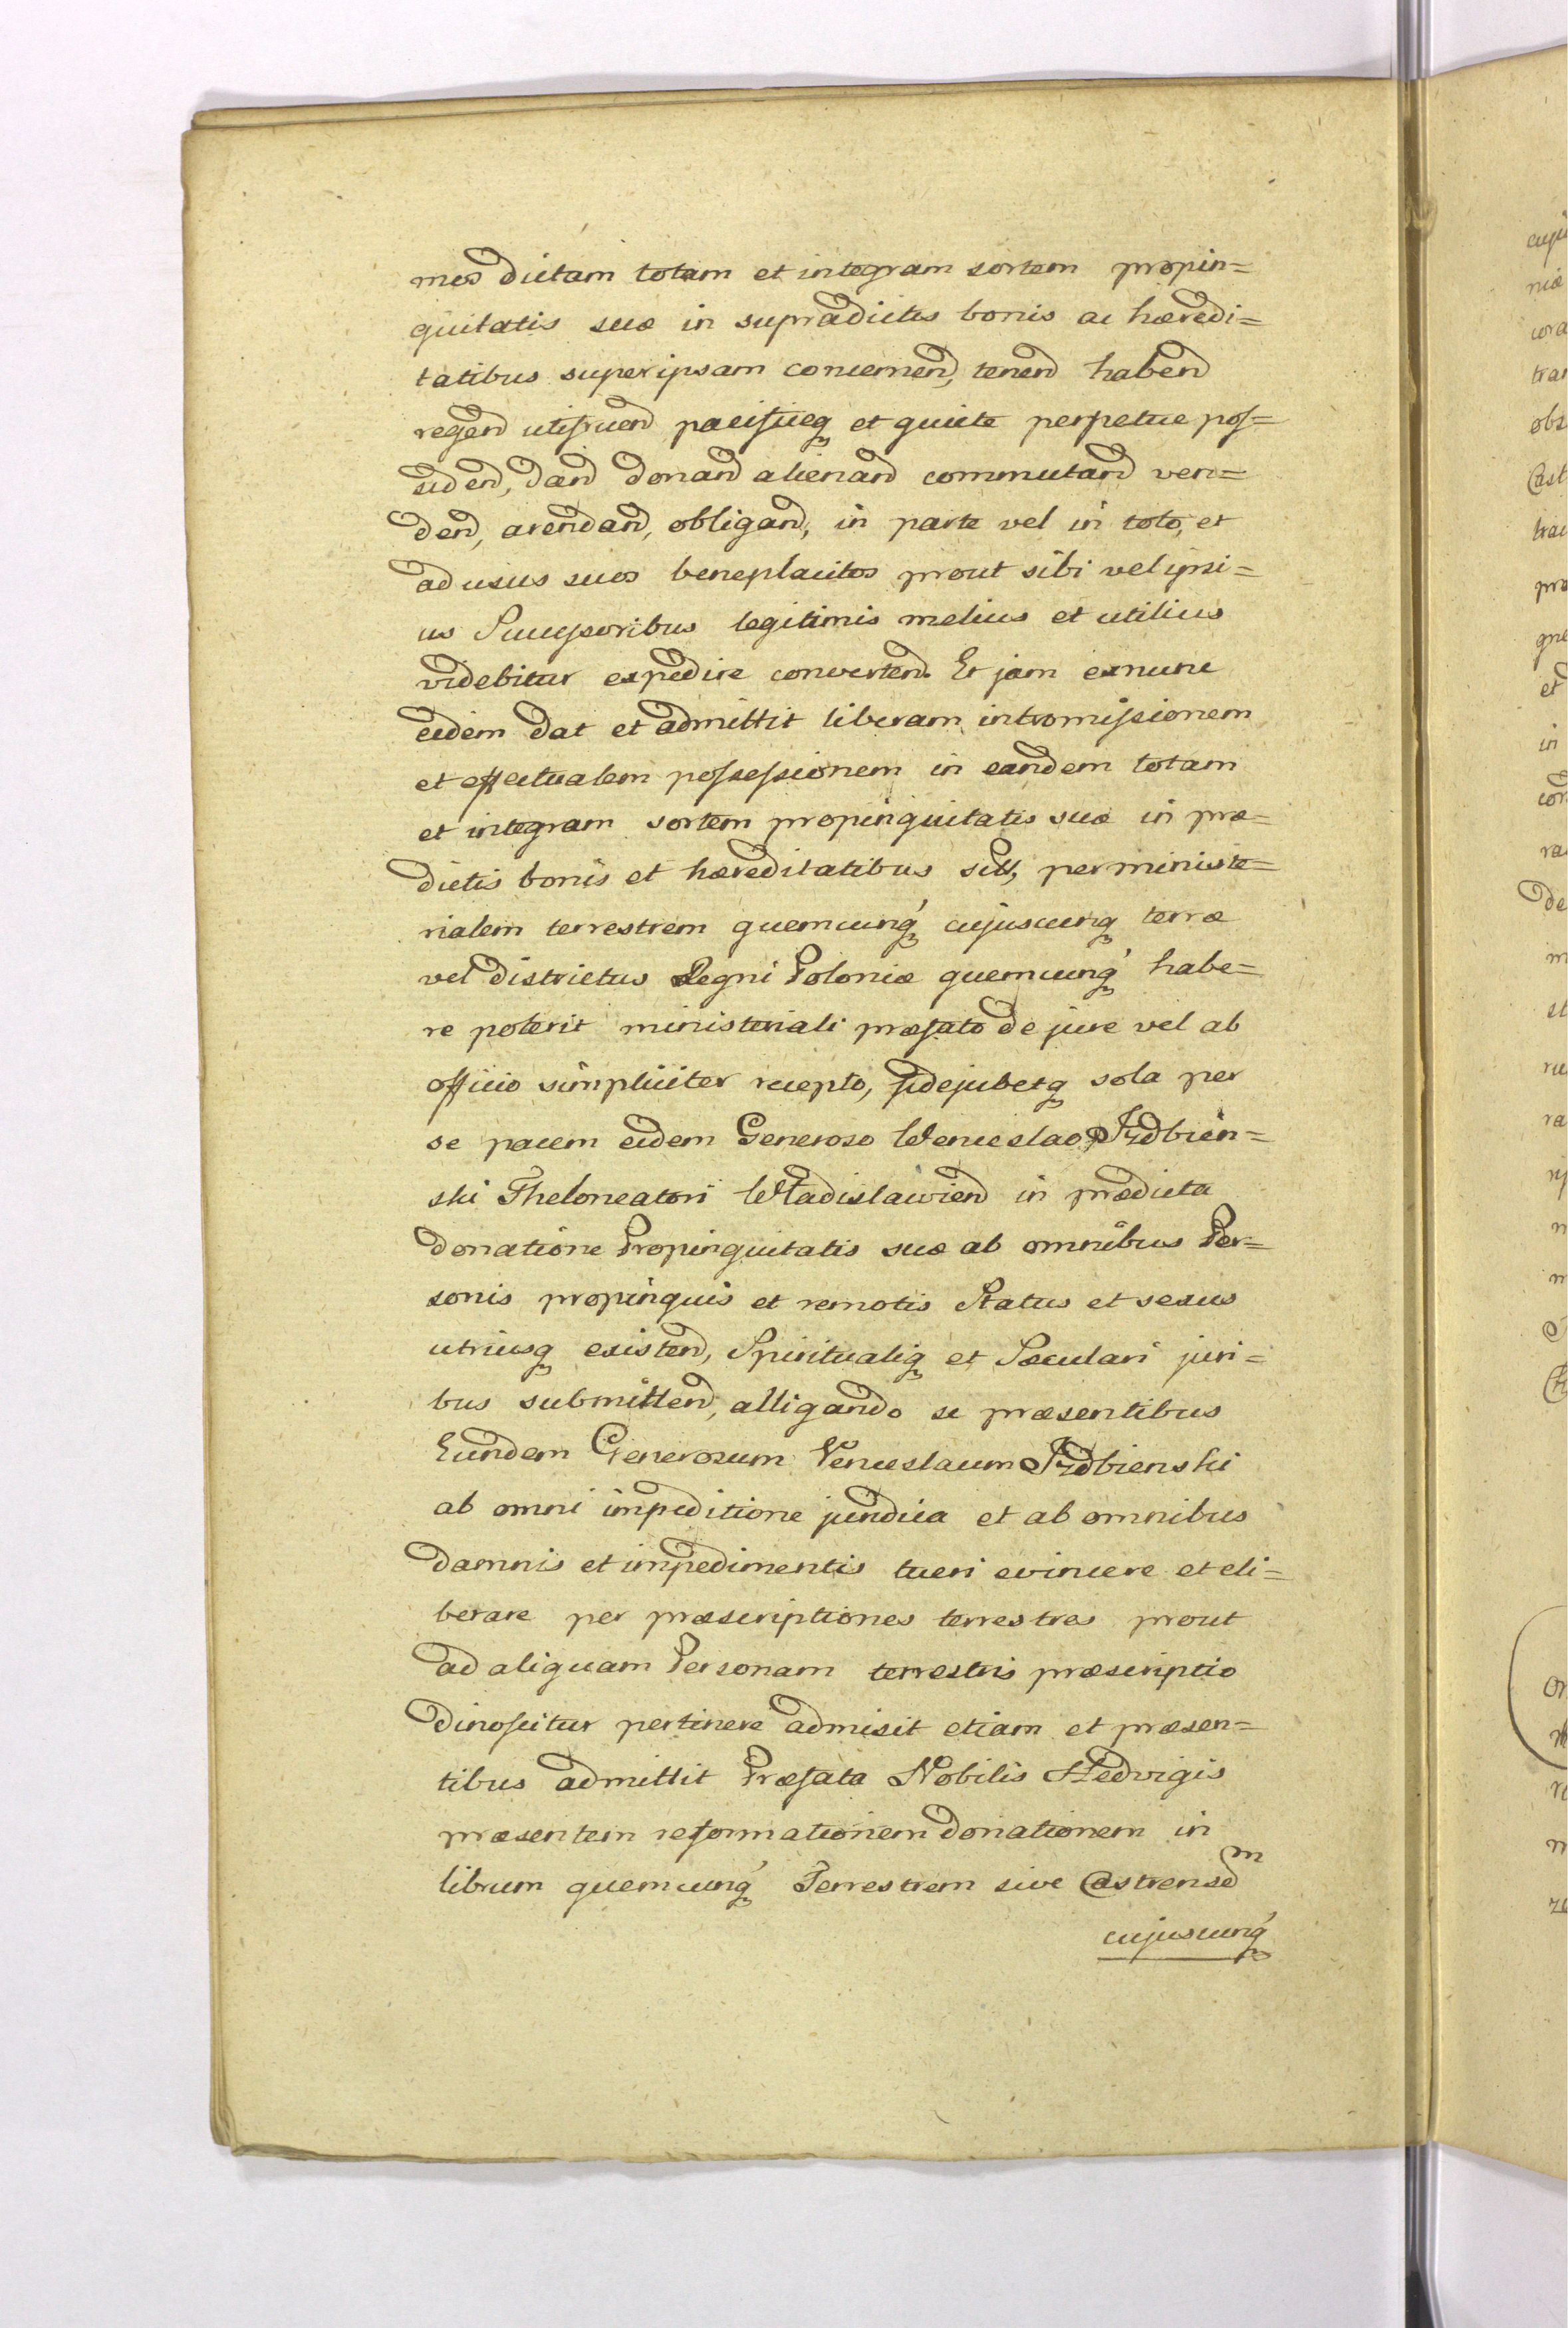 mes dictam totam et integram sortem propin=
quitatis suæ in supradictis bonis ac hæredi=
tatibus super ipsam concernend, tenend habend
regend utifruend pacificeq et quiete perpetue pos=
sidend, dand donand alienand commutand ven=
dend, arendand, obligand, in parte vel in toto, et
ad usus suos beneplacitos prout sibi vel ipsi=
us Successoribus legitimis melius et utilius
videbitur expedire convertend. Et jam exnunc
eidem dat et admittit liberam intromissionem
et effectualem possessionem in eandem totam
et integram sortem propinquitatis suæ in præ=
dictis bonis et hæreditatibus sitt, per ministe=
rialem terrestrem quemcunq cujuscunq terræ
vel districtus Regni Poloniæ quemcunq habe=
re poterit ministeriali præfato de jure vel ab
officio simpliciter recepto, fidejubetq sola per
se pacem eidem Generoso Wenceslao Izdbień=
ski Theloneatori Władislawiend in prædicta
donatione Propinquitatis suæ ab omnibus Per=
sonis propinquis et remotis Status et sexus
utriusq existend, Spiritualiq et Sæculari juri=
bus submittend, alligando se præsentibus
Eundem Generosum Venceslaum Izdbienski
ab omni impeditione juridica et ab omnibus
damnis et impedimentis tueri evincere et eli=
berare per præscriptiones terrestres prout
ad aliquam Personam terrestris præscriptio
dinoscitur pertinere admisit etiam et præsen=
tibus admittit Præfata Nobilis Hedvigis
præsentem reformationem donationem in
librum quemcunq Terrestrem sive Castrensem
cujuscunq